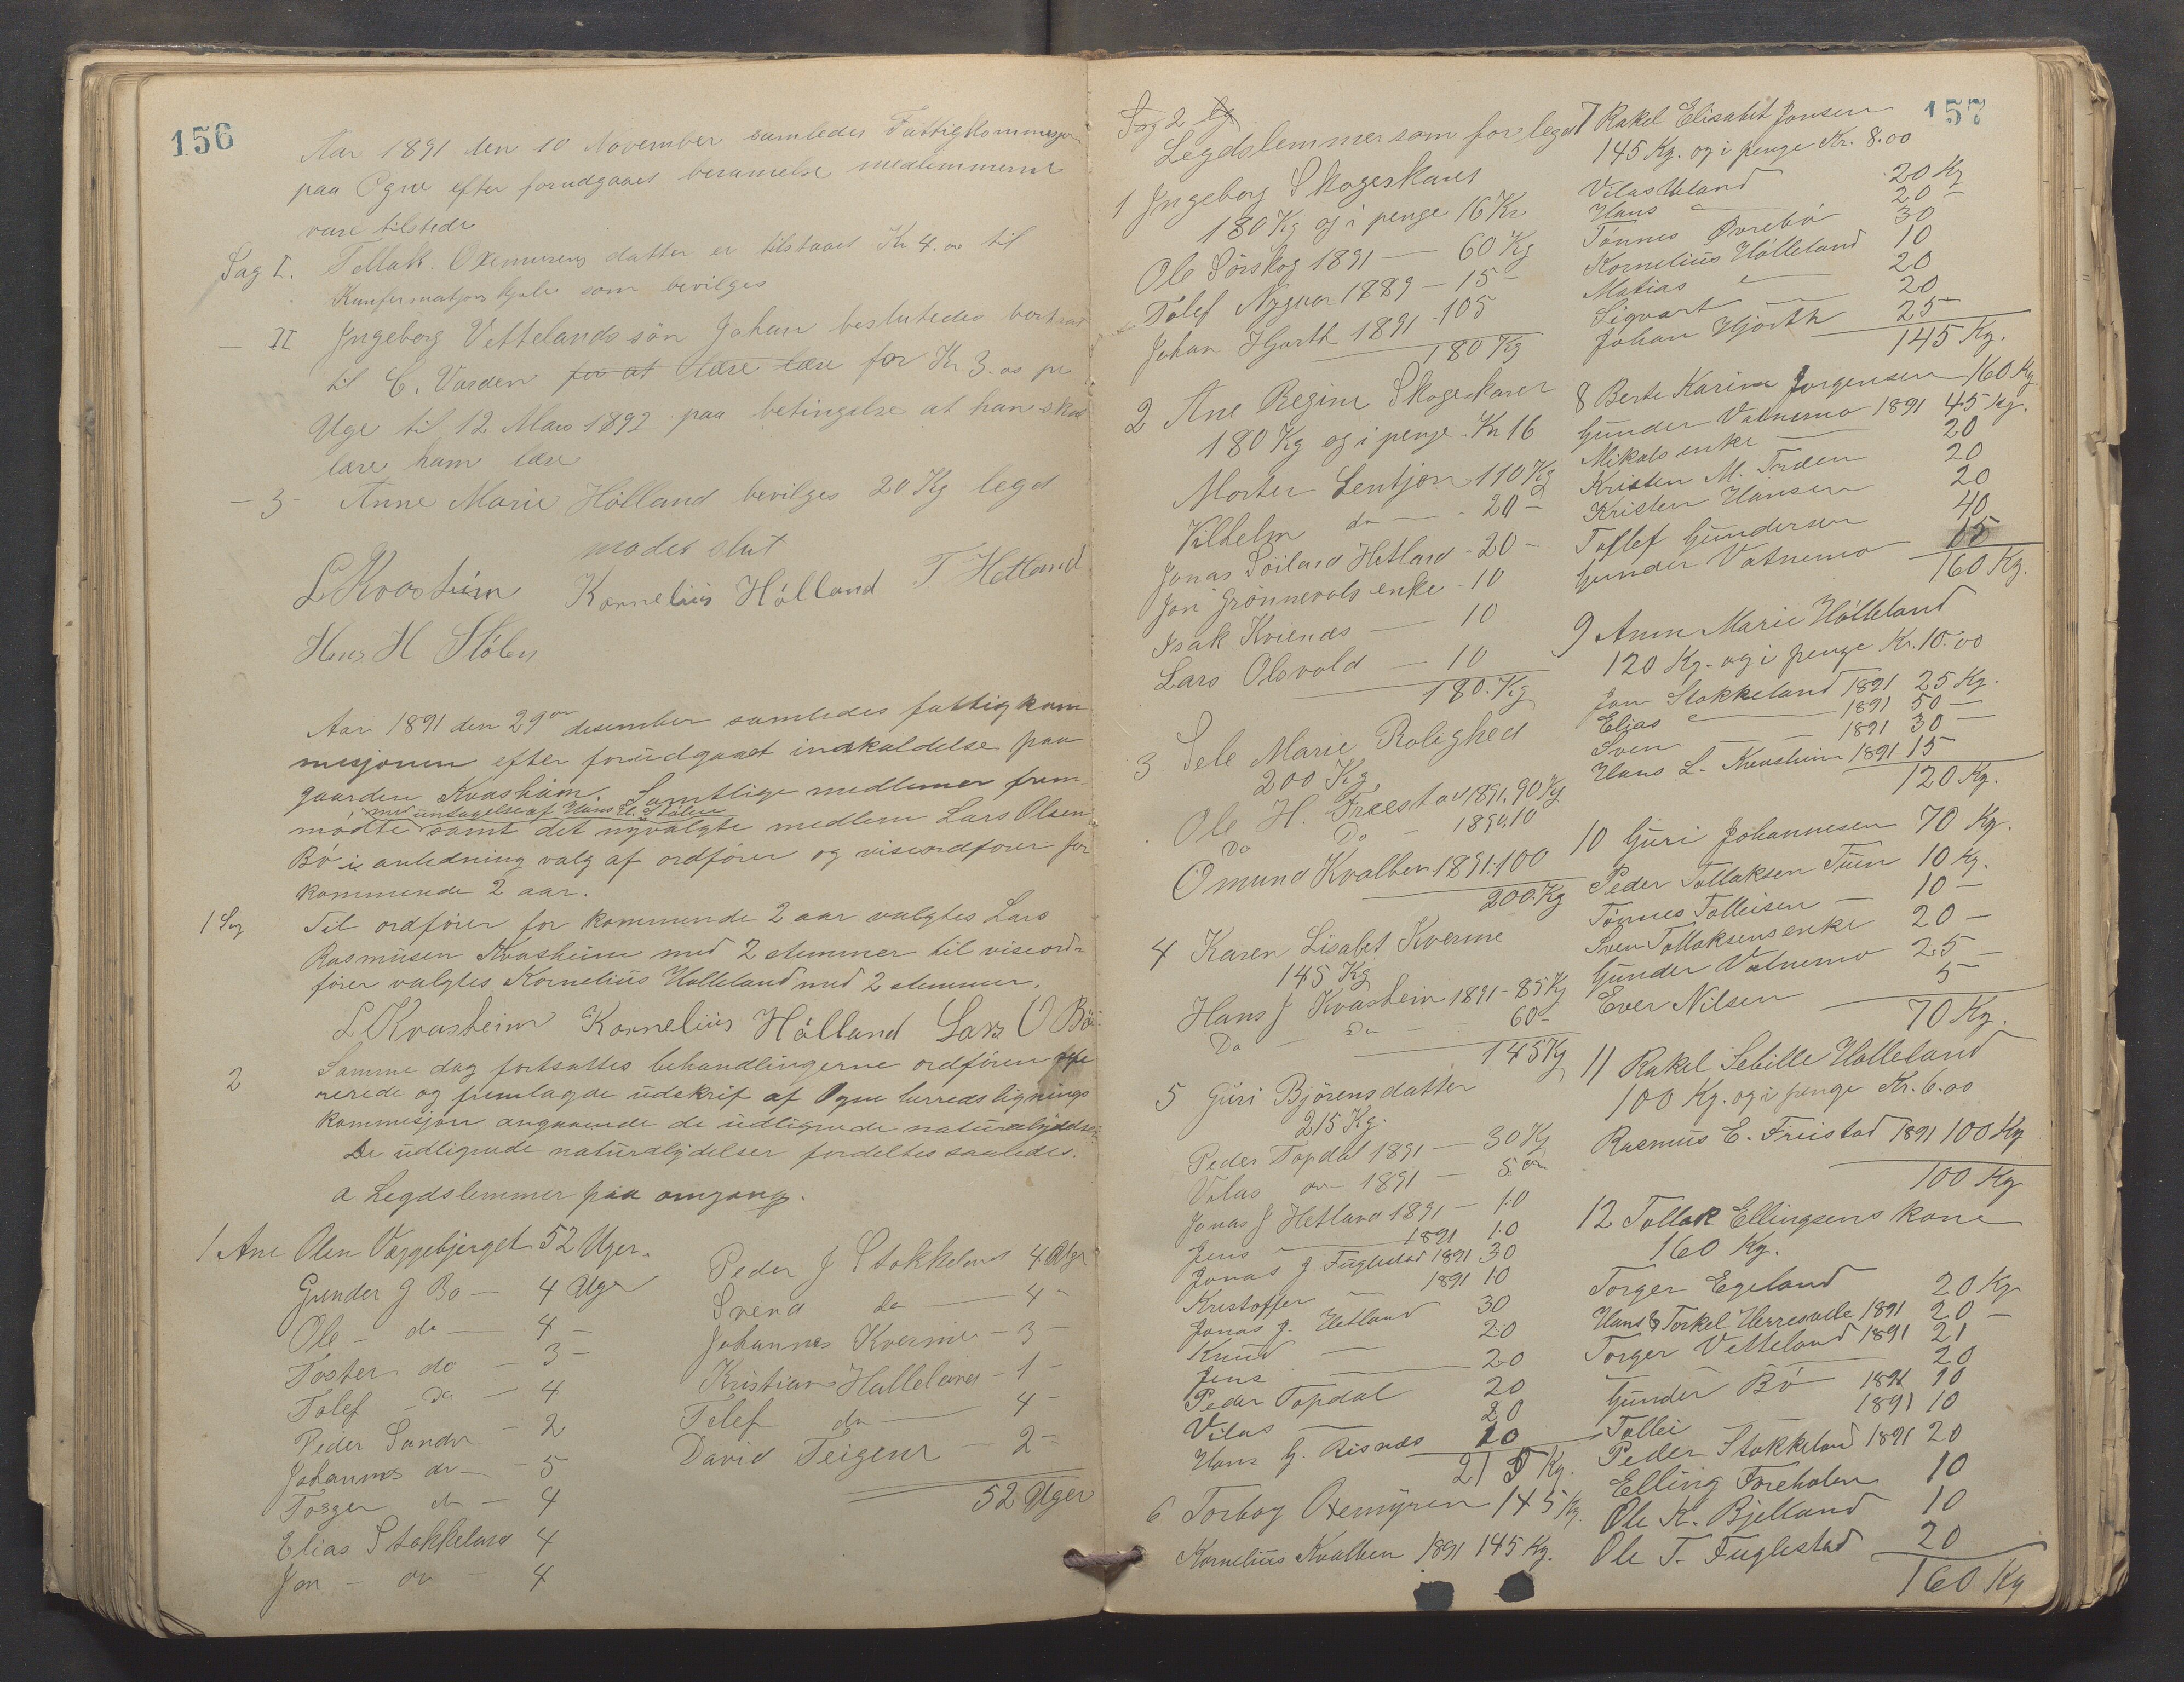 156
Aar 1891 den 10 November samledes Fattigkommisjon
paa Ogne efter forudgaaet berammelse medlemmerne
vare tilstede
Sag I. Tollak Oxemurens datter er tilstaaet Kr 4.00 til
Kunfermatjons hjelp som bevilges
— II Ingeborg Vettelands sön Johan beslutedes bortsat
til C. Varden for at lære læse for Kr 3.00 pr
Uge til 12 Mars 1892 paa betingelse at han skal
lære ham læse
— 3 Anne Marie Hölland bevilges 20 Kg legd
mödet slut
L Kvashiem Kornelius Hölland T Hetland
Hans H Stölen
Aar 1891 den 29de desember samledes fattigkom
misjonen efter forudgaaet indkaldelse paa
gaarden Kvasheim. Samtlige medlemer frem-
med untagelse af Hans H. Stölen
mödte samt det nyvalgte medlem Lars Olsen
Bö i anledning valg af ordförer og viseordforer for
kommende 2 aar.
1 Sag Til ordförer for kommende 2 aar valgtes Lars
Rasmusen Kvasheim med 2 stemmer til viseord=
förer valgtes Kornelius Hölleland med 2 stemmer.
L Kvasheim Kornelius Hölland Lars O Bö
2 Samme dag fortsattes behandlingerne ordfören refe
rerede og fremlagde udskrif af Ogne herreds lignings
kommisjon angaaende de udlignede naturalydelser
De udlignede naturalydelser fordeltes saaledes.
a Legdslemmer paa omgang.
1 Ane Olen Væggebjerget 52 Uger.
Gunder G Bö — 4 Uger
Ole — do — 4 —
Toster do — 3 —
Tolef Do — 4
Peder Sandve — 2
Johannes do — 5
Torger do — 4
Elias Stokkeland 4
Jon — do — 4
Peder J Stokkeland 4 Uger
Svend do — 4 —
Johannes Kverme — 3 —
Kristian Hølleland — 1 —
Tolef do — 4
David Teigene — 2 —
52 Uger
157
Sag 2
Legdslemmer som for legd
1 Ingeborg Skogeskaret
180 Kg og i penge 16 Kr
Ole Sörskog 1891 — 60 Kg
Tolef Nygaar 1889 — 15 —
Johan Hjorth 1891 105
180 Kg
2 Ane Regine Skogeskaret
180 Kg og i penge Kr 16
Morten Lentjon 110 Kg
Vilhelm do — 20 —
Jonas Söiland Hetland — 20 —
Jon Grönnevols enke — 10
Isak Kvienes — 10
Lars Olsvold — 10
180. Kg
3 Sele Marie Rolighed
200 Kg
Ole H. Freestad 1891. 90 Kg
Do Do — 1890. 10
Omund Kvalben 1891. 100
200. Kg
4 Karen Lisabet Kverme
145 Kg
Hans J Kvasheim 1891 — 85 Kg
Do — Do — 60 —
145 Kg
5 Guri Björensdatter
215 Kg.
Peder Topdal 1891 — 30 Kg
Vilas do 1891 — 5
Jonas J Hetland 1891 — 10
Jens — 1891 10
Jonas J Fuglestad 1891 30
Kristoffer — 1891 10
Jonas J. Hetland 30
Knud — 20
Jens — 20
Peder Topdal 20
Vilas — 20
Hans G. Risnæs 10
215 Kg.
6 Torbor Oxemyren 145 Kg.
Kornelius Kvalben 1891 145 Kg.
7 Rakel Elisabet Jonsen
145 Kg. og i penge Kr. 8.00
Vilas Ueland 20 Kg
Hans — 20 —
Tönnes Øvrebö 30
Kornelius Hölleland 10
Matias — 20
Sigvart — 20
Johan Hjorth 25
145 Kg.
8 Berte Karine Jorgensen 160 Kg.
Gunder Vatnemo 1891 45 Kg.
Mikals enke — 20
Kristen M. Tuden 20
Kristen Hansen 20
Tollef Gundersen 40
Gunder Vatnemo 15
160 Kg.
9 Ann Marie Hölleland
120 Kg. og i penge Kr. 10.00
Jon Stokkeland 1891 25 Kg.
Elias — 1891 50 —
Sven — 1891 30 —
Hans L. Kvasheim 1891 15
120 Kg.
10 Guri Johannesen 70 Kg.
Peder Tollaksen Tuen 10 Kg.
Tönnes Tolleisen — 10 —
Sven Tollaksens enke 20 —
Gunder Vatnemo 25 —
Ever Nilsen 5
70 Kg.
11 Rakel Sebille Hölleland
100 Kg. og i penge Kr. 6.00
Rasmus E. Freistad 1891 100 Kg
100 Kg
12 Tollak Ellingsens kone
160 Kg.
Torger Egeland 20 Kg
Hans & Torkel Herresvelle 1891 20 —
Torger Vetteland 1891 21
— 20
Gunder Bö 1891 10
Tollei — 1891 10
Peder Stokkeland 1891 20
Elling Foreholen 10
Ole K. Bjelland 10
Ole T. Fuglestad 20
160 Kg